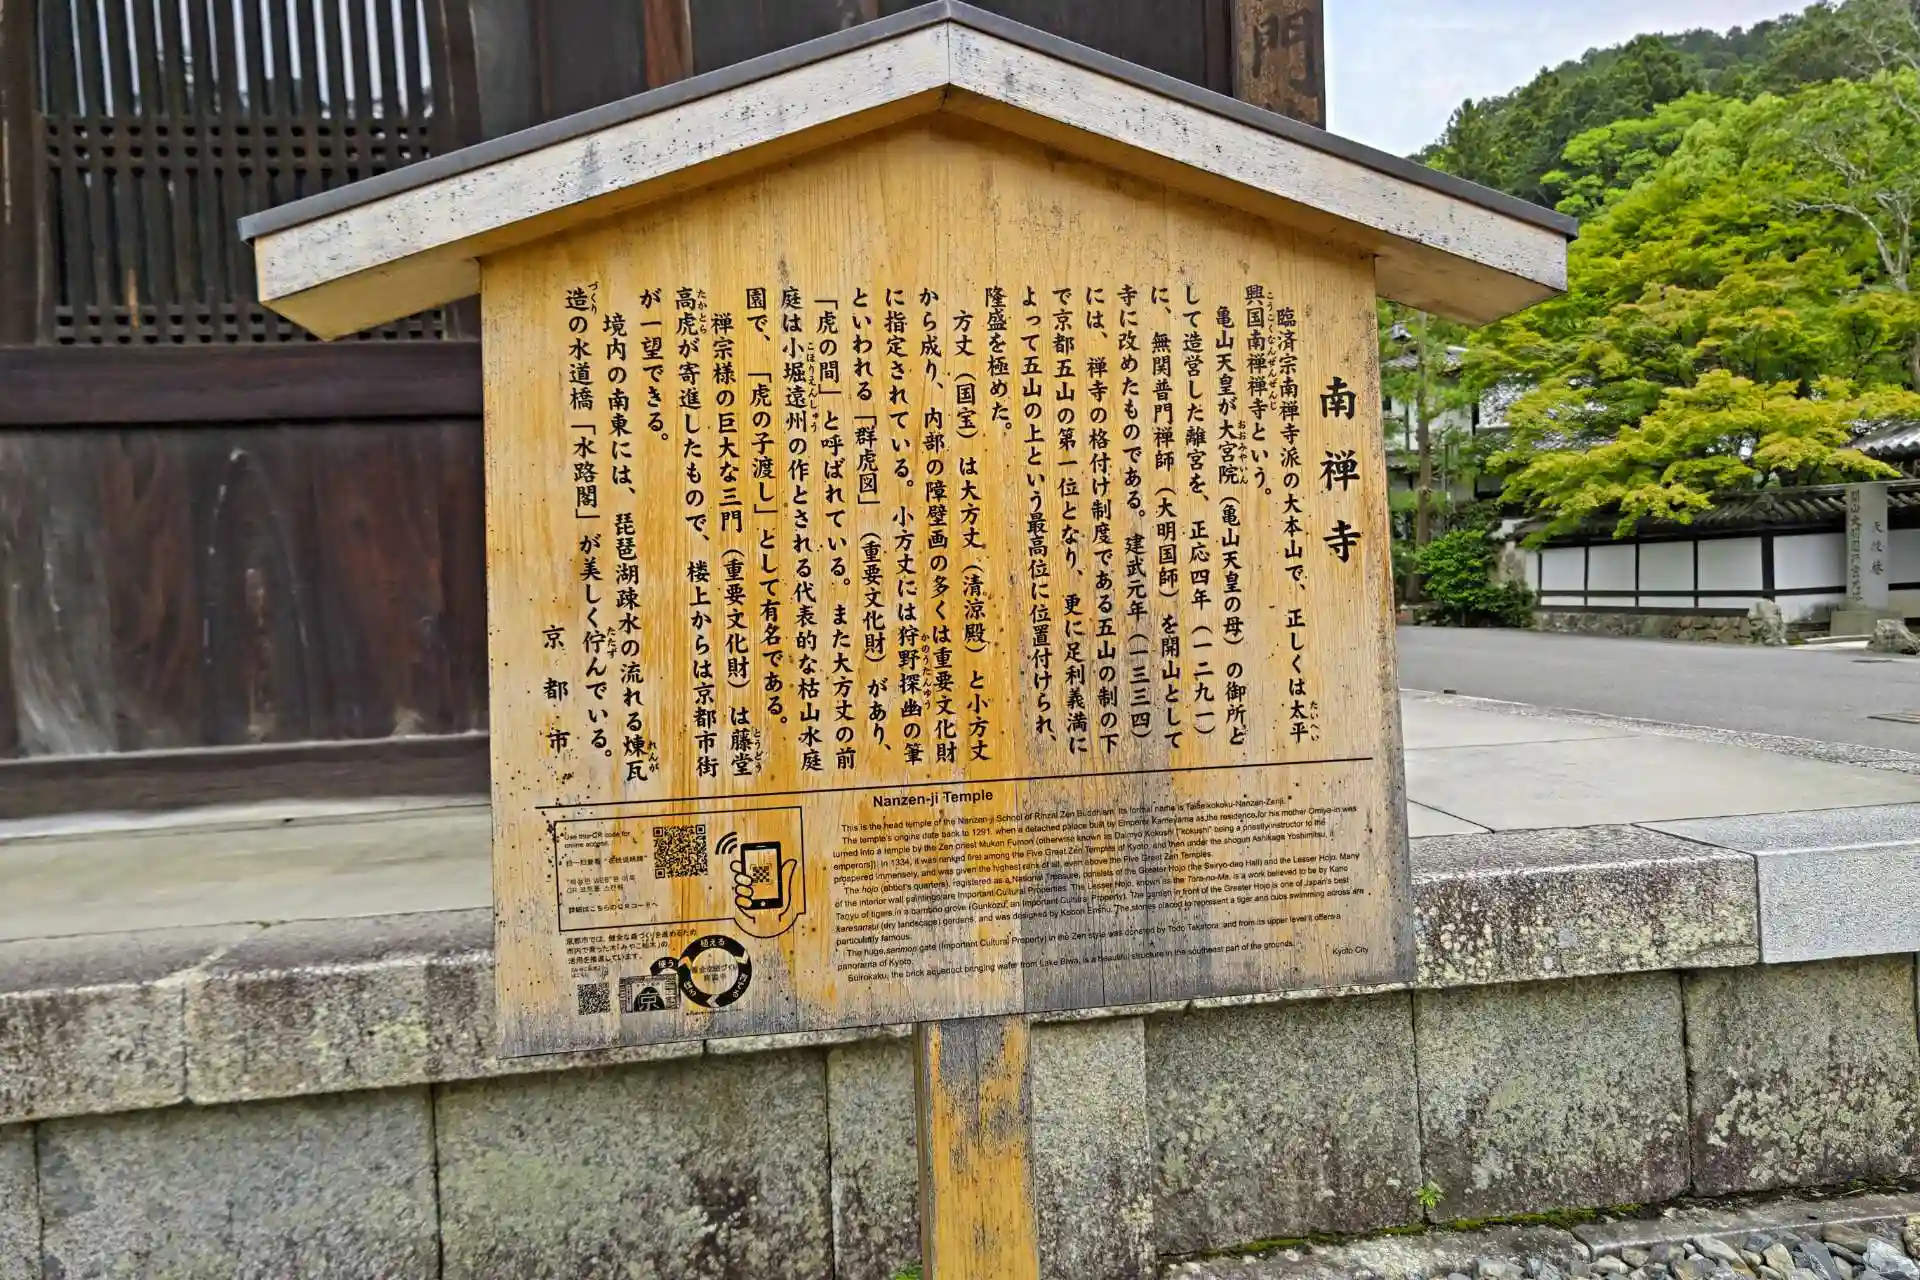 門
南禅寺
臨済宗南禅寺派の大本山で、正しくは太平
興国南禅禅寺という。
亀山天皇が大宮院（亀山天皇の母）の御所と
して造営した離宮を、正応四年（一二九一）
に、無関普門禅師（大明国師）を開山として
寺に改めたものである。建武元年（一三三四）
には、禅寺の格付け制度である五山の制の下
で京都五山の第一位となり、更に足利義満に
よって五山の上という最高位に位置付けられ、
隆盛を極めた。
方丈（国宝）は大方丈（清涼殿）と小方丈
から成り、内部の障壁画の多くは重要文化財
に指定されている。小方丈には狩野探幽の筆
といわれる「群虎図」（重要文化財）があり、
「虎の間」と呼ばれている。また大方丈の前
庭は小堀遠州の作とされる代表的な枯山水庭
園で、「虎の子渡し」として有名である。
禅宗様の巨大な三門（重要文化財）は藤堂
高虎が寄進したもので、楼上からは京都市街
が一望できる。
境内の南東には、琵琶湖疎水の流れる煉瓦
造の水道橋「水路閣」が美しく佇んでいる。
京都市
Nanzen-ji Temple
This is the head temple of the Nanzen-ji School of Rinzai Zen Buddhism. Its formal name is Taiheikokoku-Nanzen-Zenji.
The temple's origins date back to 1291, when a detached palace built by Emperor Kameyama as the residence for his mother Omiya-in was
turned into a temple by the Zen priest Mukan Fumon (otherwise known as Daimyo Kokushi ["kokushi" being a priestly instructor to the
emperors]). In 1334, it was ranked first among the Five Great Zen Temples of Kyoto, and then under the shogun Ashikaga Yoshimitsu, it
prospered immensely, and was given the highest rank of all, even above the Five Great Zen Temples.
The hojo (abbot's quarters), registered as a National Treasure, consists of the Greater Hojo (the Seiryo-den Hall) and the Lesser Hojo. Many
of the interior wall paintings are Important Cultural Properties. The Lesser Hojo, known as the Tora-no-Ma, is a work believed to be by Kano
Tanyu of tigers in a bamboo grove (Gunkozu, an Important Cultural Property). The garden in front of the Greater Hojo is one of Japan's best
karesansui (dry landscape) gardens, and was designed by Kobori Enshu. The stones placed to represent a tiger and cubs swimming across are
particularly famous.
The huge sanmon gate (Important Cultural Property) in the Zen style was donated by Todo Takatora, and from its upper level it offers a
panorama of Kyoto.
Suirokaku, the brick aqueduct bringing water from Lake Biwa, is a beautiful structure in the southeast part of the grounds.
Kyoto City
Use this QR code for
online access.
詳細はこちらのQRコードへ
京都市では、健全な森づくりを進めるため
市内で育った木「みやこ杣木」の
活用を推進しています。
植える
使う
京